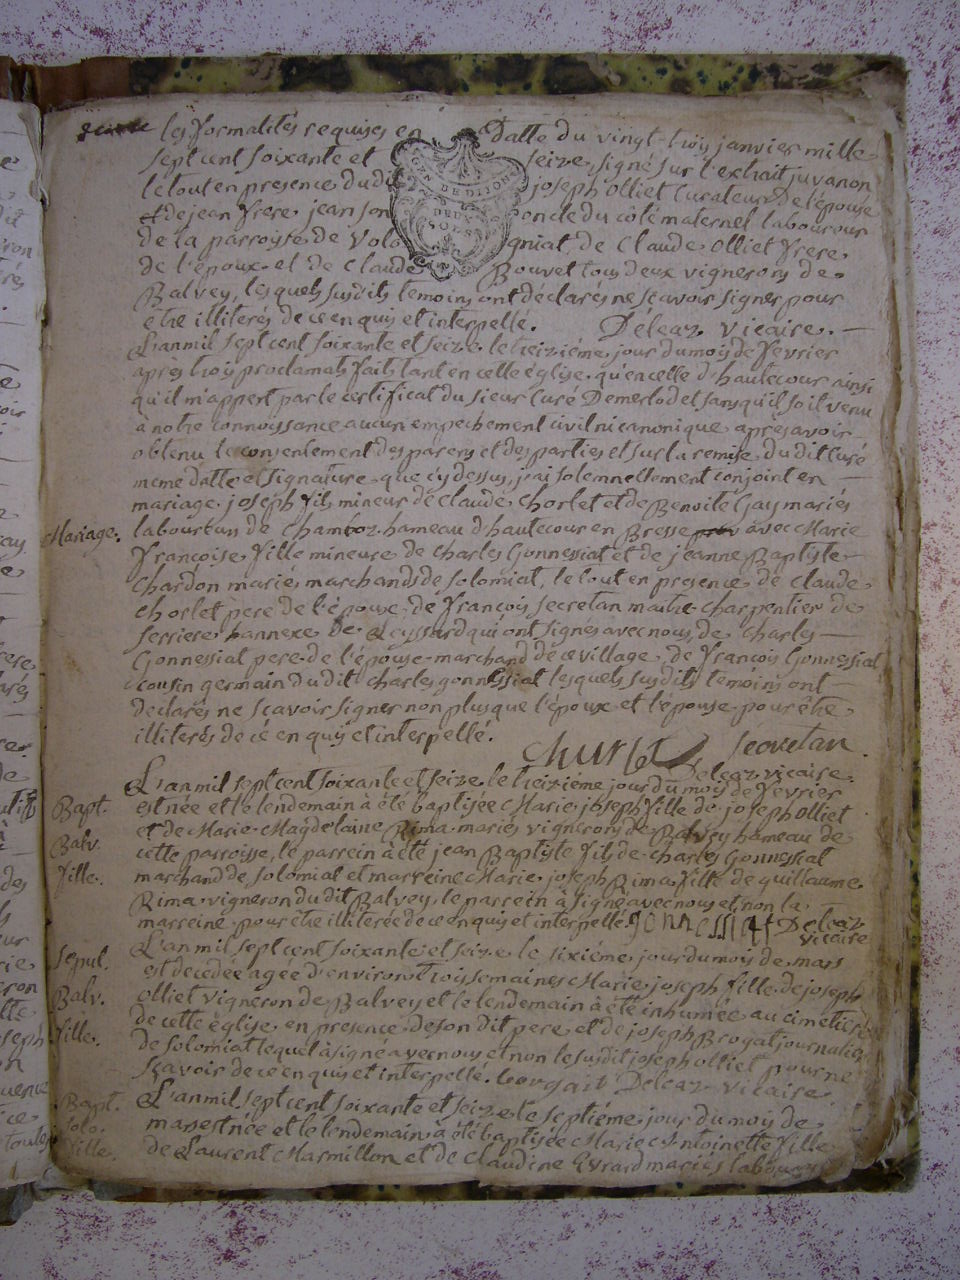 les formalités requises en Datte du vingt-troÿ janvier mille
sept cent soixante et seize, signé sur l'extrait juvanon
le tout en presence du dit joseph olliet Curateur de l'épouse
et de jean frere, jean son oncle du côté maternel laboureur
de la parroÿse de Volo gniat, de Claude olliet frere
de l'époux et de Claude Bouvet tous deux vignerons de
Balvey, lesquels susdits temoins ont déclarés ne sçavoir signer pour
etre illiterés de ce enquis et interpellé. Déleaz vicaire.
GEN. DE DIJON
DEUX
SOLS
L'an mil sept cent soixante et seize le treiziéme jour du moÿ de fevrier
après troÿ proclamats faits tant en cette église qu'en celle d'hautecour ainsi
qu'il m'appert par le certificat du sieur Curé Demerlod et sans qu'il soit venu
à notre connoissance aucun empechement civil ni canonique après avoir
obtenu le consentement des parens et des parties et sur la remise du dit Curé
meme datte et signature que cÿ dessus, j'ai solemnellement conjoint en
mariage joseph fils mineur de Claude Chorlet et de Benoite Gay mariés
Mariage. laboureurs de Chamboz hameau d'hautecour en Bresse avec Marie
françoise fille mineure de Charles Gonnessiat et de jeanne Baptiste
Chardon mariés marchands de solomiat, le tout en presence de Claude
Chorlet pere de l'époux, de françois secretan maitre charpentier de
serriere annexe de Leyssard qui ont signés avec nous, de Charles
Gonnessiat pere de l'épouse marchand de ce village, de françois Gonnessiat
cousin germain du dit Charles gonnessiat lesquels susdits temoins ont
declarés ne sçavoir signer non plus que l'époux et l'épouse pour être
illiterés de ce enquis et interpellé.
Churlet secretan
Deleaz vicaire
L'an mil sept cent soixante et seize le treiziéme jour du moÿ de fevrier
Bapt. est née et le lendemain à été baptisée Marie joseph fille de joseph olliet
Balv. et de Marie Magdelaine Rima mariés vignerons de Balvey hameau de
fille. cette parroisse, le parrein à été jean Baptiste fils de Charles Gonnessiat
marchand de solomiat et marreine Marie joseph Rima fille de guillaume
Rima vigneron du dit Balvey, le parrein à signé avec nous et non la
marreine pour être illiterée de ce enquis et interpellé. gonnessiat Deleaz
vicaire
Sepul. L'an mil sept cent soixante et seize le sixiéme jour du moÿ de mars
est decédée agée d'environ trois semaines Marie joseph fille de joseph
Balv. olliet vigneron de Balvey et le lendemain à été inhumée au cimetiere
fille. de cette église en presence de son dit pere et de joseph Brogat journalier
de solomiat lequel à signé avec nous et non le susdit joseph olliet pour ne
sçavoir de ce enquis et interpellé. Deleaz vicaire
Bapt. L'an mil sept cent soixante et seize le septiéme jour du moÿ de
Solo. mars est née et le lendemain à été baptisée Marie Antoinette fille
fille. de Laurent Marmillon et de Claudine Evrard mariés